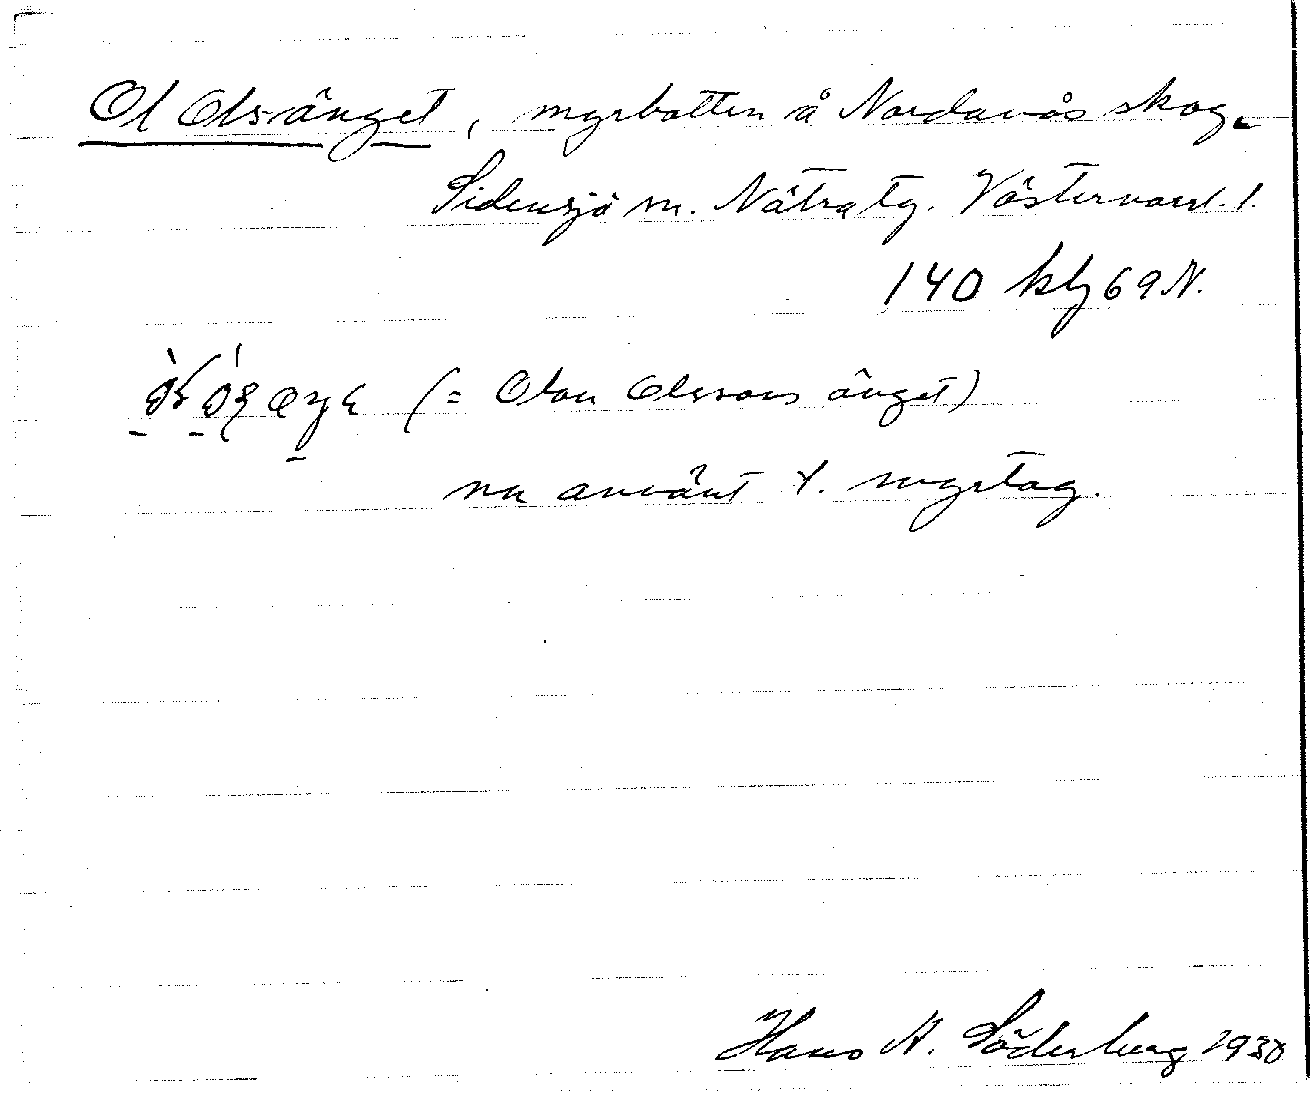 Ol Olsänget, myrbotten å Nordanås skog.
Sidensjö sn. Nätra tg. Västernorrl. l.
140 kbg 69 N.
(= Olou Olssons änget)
nu använt t. myrtag.
Hans A. Söderberg 1930